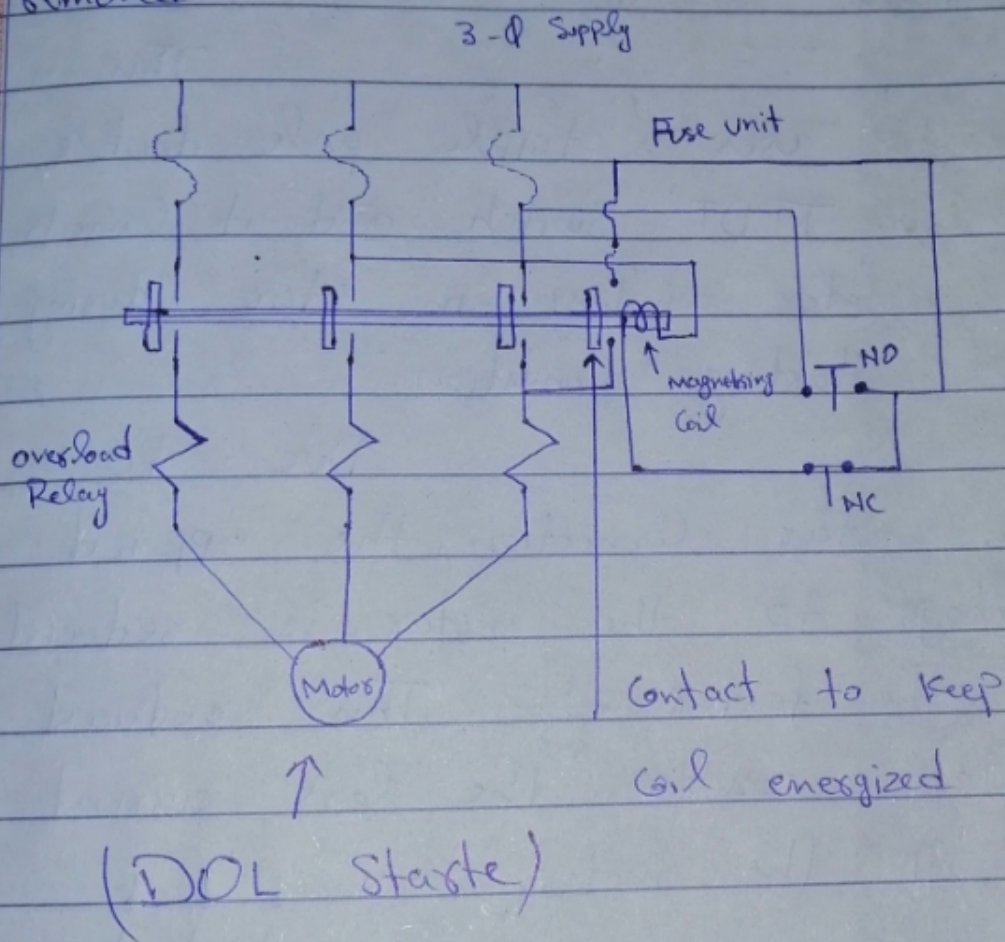 3-Φ Supply
Fuse unit
NO
Magnetising
Coil
NC
overload
Relay
Motor
Contact to Keep
Coil energized
(DOL Starte)